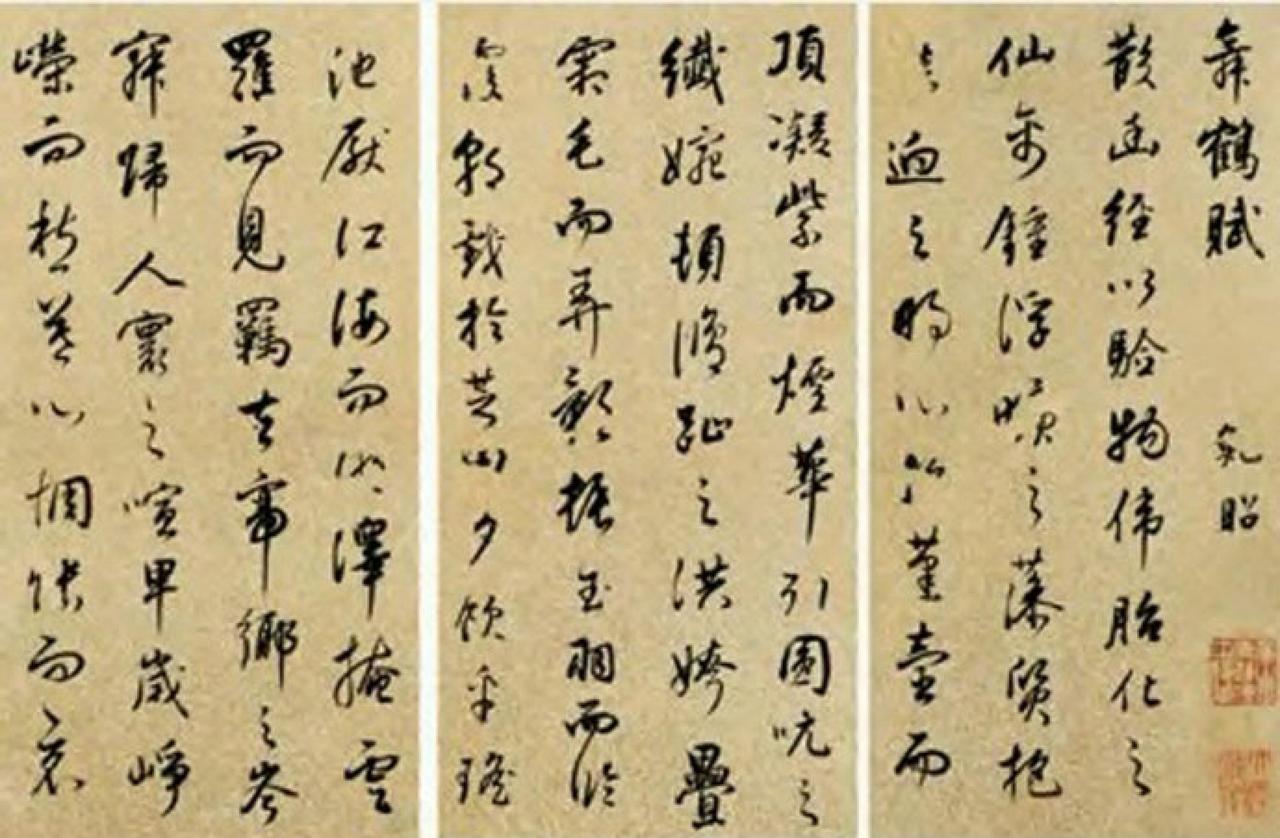 舞鶴賦 鮑昭
散幽經以驗物偉胎化之
仙禽鍾浮曠之藻質抱
清迥之明心指蓬壺而
頂凝紫而煙華引圓吭之
纖婉頓脩趾之洪姱疊
霜毛而弄影振玉羽而臨
霞朝戲於芝田夕飲乎瑤
池厭江海而遊澤掩雲
羅而見羈去帝鄉之岑
寂歸人寰之喧卑歲崢
嶸而愁暮心惆悵而哀